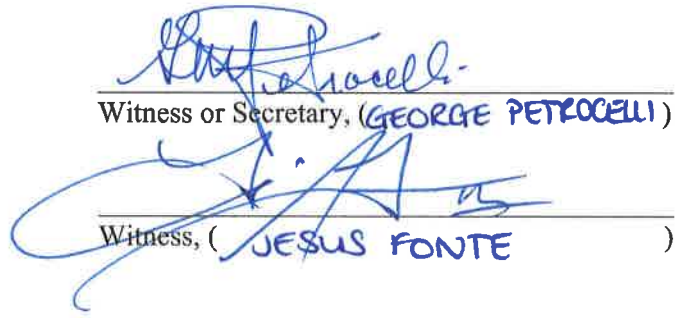 GM Petrocelli
Witness or Secretary, (GEORGE PETROCELLI)
Witness, ( JESUS FONTE )